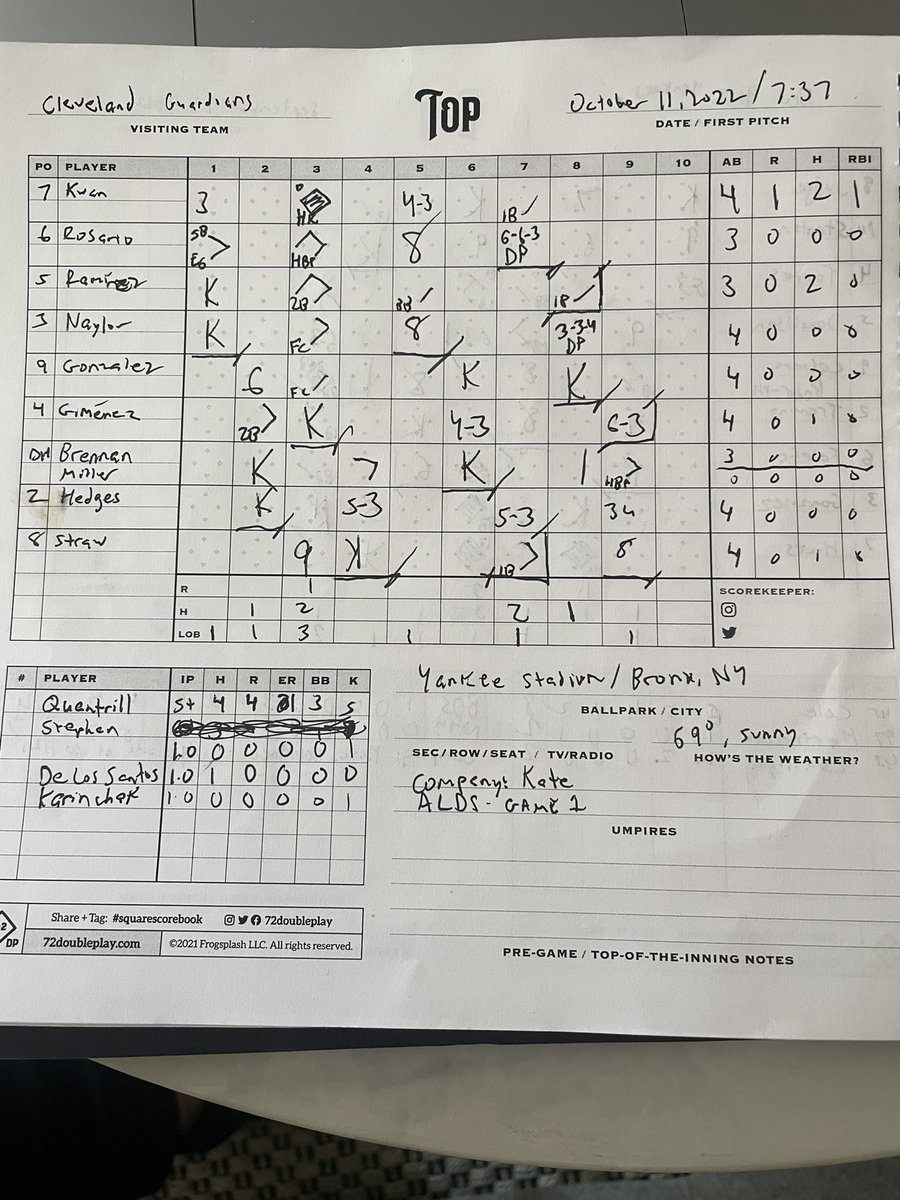 Cleveland Guardians TOP October 11, 2022 / 7:37
VISITING TEAM DATE / FIRST PITCH
PO PLAYER 1 2 3 4 5 6 7 8 9 10 AB R H RBI
7 Kwan 3 HR 4-3 1B 4 1 2 1
6 Rosario SB E6 HBP 8 6-6-3 DP 3 0 0 0
5 Ramirez K 2B BB 1B 3 0 2 0
3 Naylor K FC 8 3-3-4 DP 4 0 0 0
9 Gonzalez 6 FC K K 4 0 0 0
4 Giménez 2B K 4-3 6-3 4 0 1 0
DH Brennan K 7 K 1 HBP 3 0 0 0
Miller 0 0 0 0
2 Hedges K 5-3 5-3 34 4 0 0 0
8 Straw 9 K 1B 8 4 0 1
R 1
H 1 2 2 1
LOB 1 1 3 1 1 1
SCOREKEEPER:
# PLAYER IP H R ER BB K
Quantrill 5+ 4 4 3 5
Stephen
1.0 0 0 0 0 1
De Los Santos 1.0 1 0 0 0 0
Karinchak 1.0 0 0 0 0 1
Yankee Stadium / Bronx, NY
BALLPARK / CITY
69°, sunny
SEC / ROW / SEAT / TV/RADIO HOW'S THE WEATHER?
Company: Kate
ALDS - GAME 1
UMPIRES
PRE-GAME / TOP-OF-THE-INNING NOTES
DP
Share + Tag: #squarescorebook 72doubleplay
72doubleplay.com ©2021 Frogsplash LLC. All rights reserved.